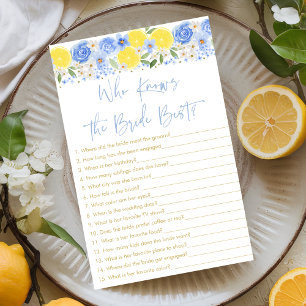 Who Knows
the Bride Best?
1. Where did the bride meet the groom?
2. How long has she been engaged?
3. When is her birthday?
4. How many siblings does she have?
5. What city was she born in?
6. How tall is the bride?
7. What color are her eyes?
8. When is the wedding date?
9. What is her favorite TV show?
10. Does the bride prefer coffee or tea?
11. What is her favorite food?
12. How many kids does the bride want?
13. What is her favorite place to shop?
14. Where did the bride get engaged?
15. What is her favorite color?